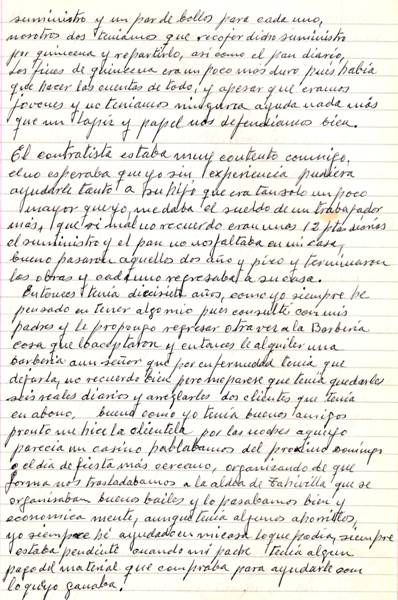 suministro y un par de bollos para cada uno,
nosotros dos teniamos que recojer didro suministro
por quincena y repartirlo, así como el pan diario,
Los fines de quincena era un poco más duro pues había
que hacer las cuentas de todo, y apesar que eramos
jóvenes y no teniamos ninguna ayuda nada más
que un lapiz y papel nos defendiamos bien.
El contratista estaba muy contento conmigo,
el no esperaba que yo sin experiencia pudiera
ayudarle tanto a su hijo que era tan solo un poco
mayor que yo, me daba el sueldo de un trabajador
más, que si mal no recuerdo eran unas 12 ptas diarias
el suministro y el pan no nos faltaba en mi casa,
bueno pasaron aquellos dos año y pico y terminaron
las obras y cada uno regresaba a su casa.
Entonces tenía diecisiete años, como yo siempre he
pensado en tener algo mio pues consulté con mis
padres y le propongo regresar otra ver a la Barbería
cosa que lo aceptaron y entonces le alquiler una
barbería a un señor que por enfermedad tenía que
dejarla, no recuerdo bien pero me parese que tenía que darles
seis reales diarios y areglarles dos clientes que tenía
en abono, bueno como yo tenía buenos amigos
pronto me hice la clientela por las noches aquello
parecia un casino hablabamos del proximo Domingo
o el día de fiesta más cercano, organizando de que
forma nos trasladabamos a la aldea de que se
organisaban buenos bailes y lo pasabamos bien y
economica mente, aunque tenía algunos ahorritos,
yo siempre hé ayudado en mi casa lo que podía, siempre
estaba pendiente cuando mi padre tenía algun
pago del material que compraba para ayudarle con
lo que yo ganaba.